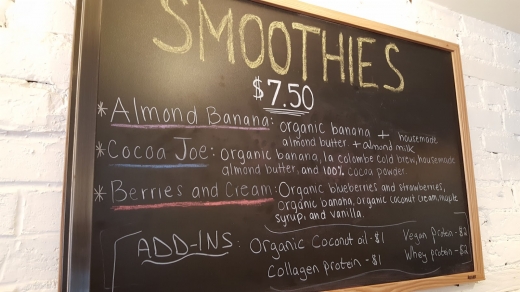 SMOOTHIES
$7.50
* Almond Banana: organic banana + housemade
almond butter + almond milk
* Cocoa Joe: organic banana, la colombe cold brew, housemade
almond butter, and 100% cocoa powder
* Berries and Cream: Organic blueberries and strawberries,
organic banana, organic coconut cream, maple
syrup, and vanilla.
ADD-INS: Organic Coconut oil - $1 Vegan protein - $2
Collagen protein - $1 Whey protein - $2